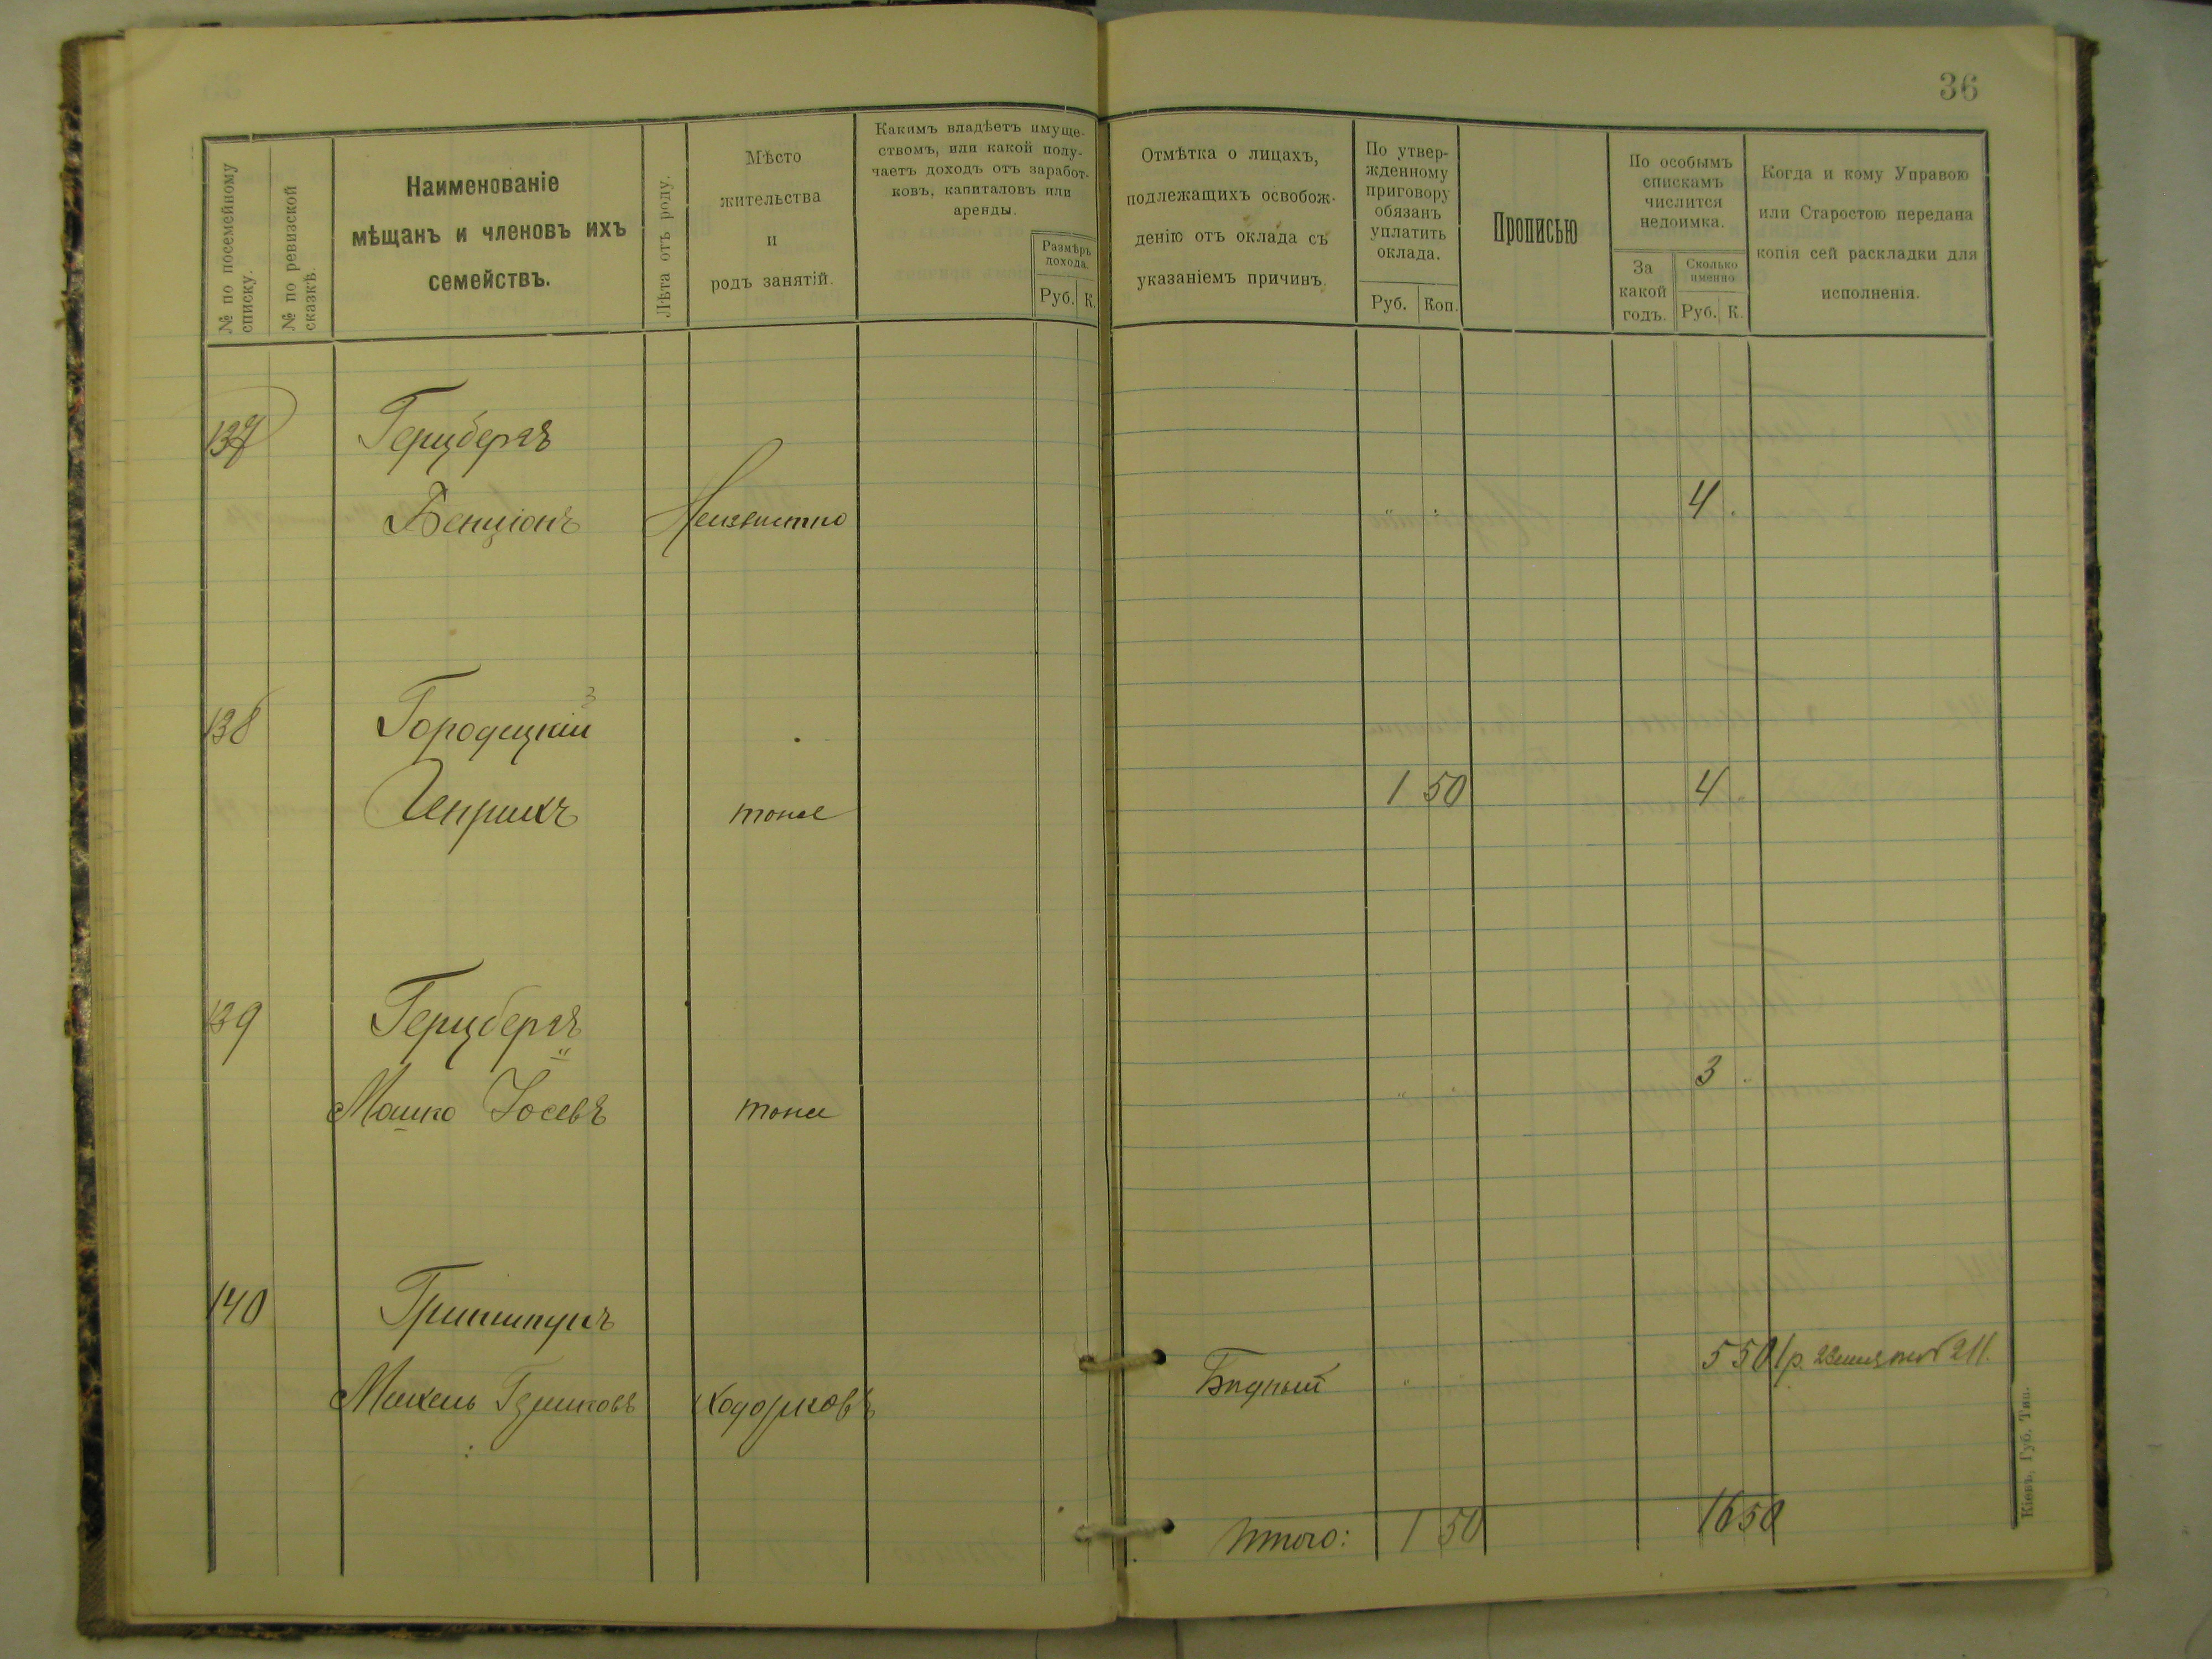 36
№ по посемейному списку.
№ по ревизской сказкѣ.
Наименованіе
мѣщанъ и членовъ ихъ
семействъ.
Лѣта отъ роду.
Мѣсто
жительства
и
родъ занятій.
Какимъ владѣетъ имуще-
ствомъ, или какой полу-
чаетъ доходъ отъ заработ-
ковъ, капиталовъ или
аренды.
Размѣръ
дохода.
Руб. К.
Отмѣтка о лицахъ,
подлежащихъ освобож-
денію отъ оклада съ
указаніемъ причинъ.
По утвер-
жденному
приговору
обязанъ
уплатить
оклада.
Руб. Коп.
Прописью
По особымъ
спискамъ
числится
недоимка.
За
какой
годъ.
Сколько
именно
Руб. К.
Когда и кому Управою
или Старостою передана
копія сей раскладки для
исполненія.
137 Герцбергъ
Бенціонъ Неизвѣстно " " 4
138 Городецкій
Генрихъ тоже 1 50 4
139 Герцбергъ
Мошко Іосевъ тоже " " 3
140
Михель Ходорковъ Бѣдный " 5 50 1 р.
Итого: 1 50 16 50
Кіевъ, Губ. Тип.